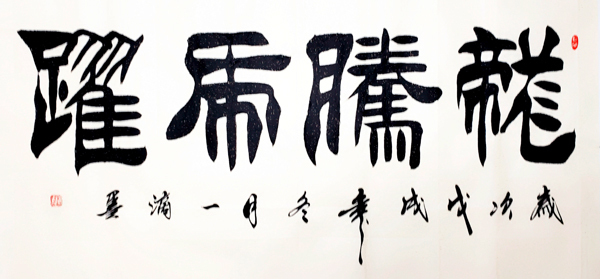 龍騰虎躍
歲次戊戌年冬月一滴墨